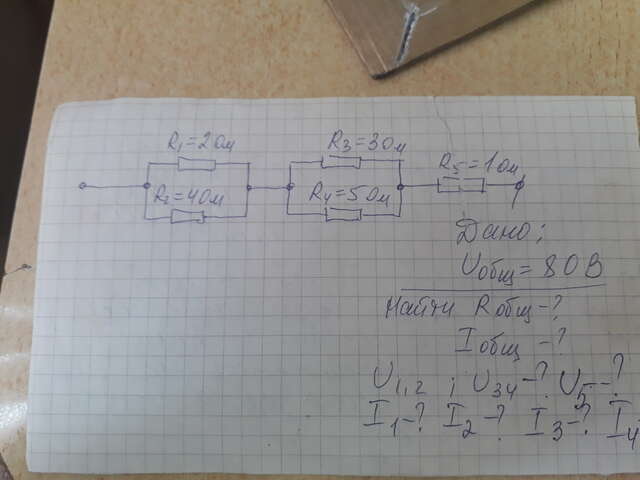 R₁=2Ом R₃=3Ом
R₂=4Ом R₄=5Ом R₅=1Ом
Дано:
Uобщ=80В
Найти Rобщ-?
Iобщ-?
U₁,₂; U₃₄-? U₅-?
I₁-? I₂-? I₃-? I₄